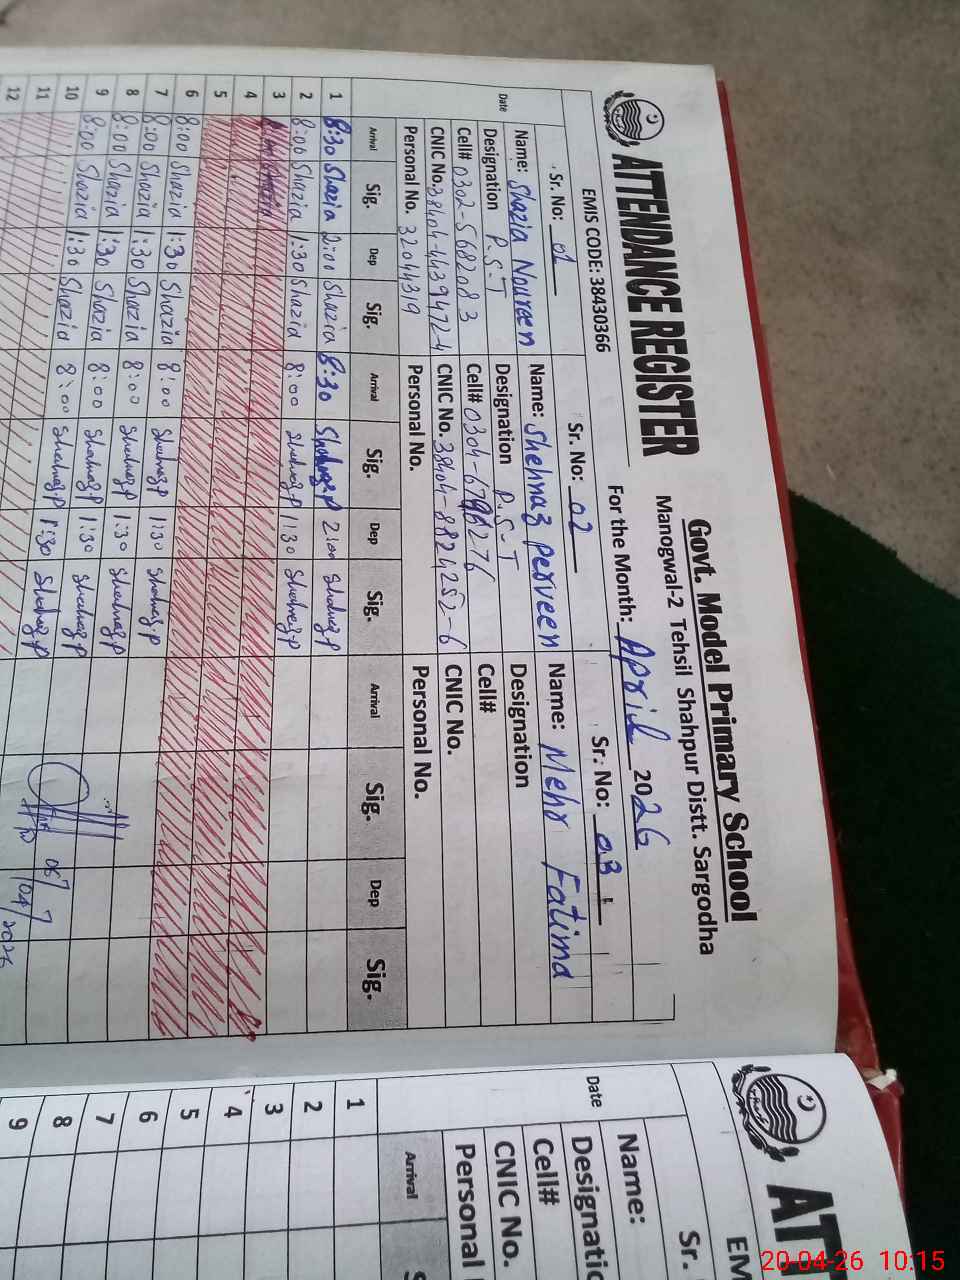 Govt. Model Primary School
Manogwal-2 Tehsil Shahpur Distt. Sargodha
ATTENDANCE REGISTER
For the Month: April 2026
EMIS CODE: 38430366
Sr. No: 01 Sr. No: 02 Sr. No: 03
Date
Name: Shazia Noureen Name: Shehnaz perveen Name: Mehr Fatima
Designation P.S.T Designation P.S.T Designation
Cell# 0302-5682083 Cell# 0304-6796276 Cell#
CNIC No. 38404-4439472-4 CNIC No. 38404-8824252-6 CNIC No.
Personal No. 32044319 Personal No. Personal No.
Arrival Sig. Dep Sig. Arrival Sig. Dep Sig. Arrival Sig. Dep Sig.
1 8:30 Shazia 2:00 Shazia 8:30 Shehnaz.P 2:00 Shehnaz.P
2 8:00 Shazia 1:30 Shazia 8:00 Shehnaz.P 1:30 Shehnaz.P
3
4
5
6 8:00 Shazia 1:30 Shazia 8:00 Shehnaz.P 1:30 Shehnaz.P
7 8:00 Shazia 1:30 Shazia 8:00 Shehnaz.P 1:30 Shehnaz.P
8 8:00 Shazia 1:30 Shazia 8:00 Shehnaz.P 1:30 Shehnaz.P
9 8:00 Shazia 1:30 Shazia 8:00 Shehnaz.P 1:30 Shehnaz.P
10
11
12
/04/2026
AT
EM
Sr.
Date
Name:
Designatio
Cell#
CNIC No.
Personal
Arrival S
1
2
3
4
5
6
7
8
9
20-04-26 10:15